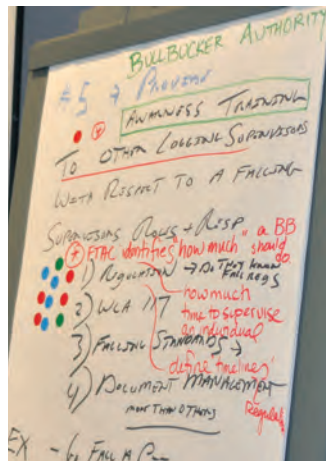 BULLBUCKER AUTHORITY
#5 → PROVIDE
AWARNESS TRAINING
TO OTHER LOGGING SUPERVISORS
WITH RESPECT TO A FALLING
SUPERVISORS ROLES + RESP
FTAC identifies "how much" a BB should do
1) REGULATION → DO THEY KNOW FALL REGS
how much time to supervise an individual
2) WCA 117
3) FALLING STANDARDS →
define timelines
4) DOCUMENT MANAGEMENT
MORE THAN OTHERS
Regular
EX - 60 FALL A